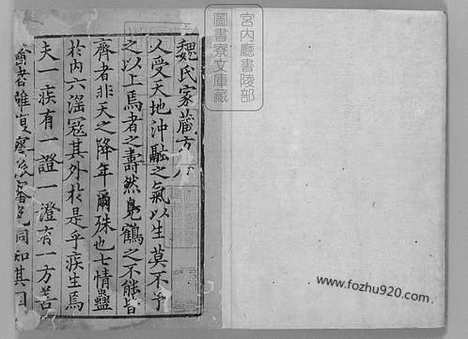 魏氏家藏方
人受天地沖融之氣以生莫不予
之以上焉者之壽然鳧鶴之不能皆
齊者非天之降年爾殊也七情蠱
於内六滛寇其外於是乎疾生焉
夫一疾有一證一證有一方苦
宮内廳書陵部
圖書寮文庫藏
www.fozhu920.com